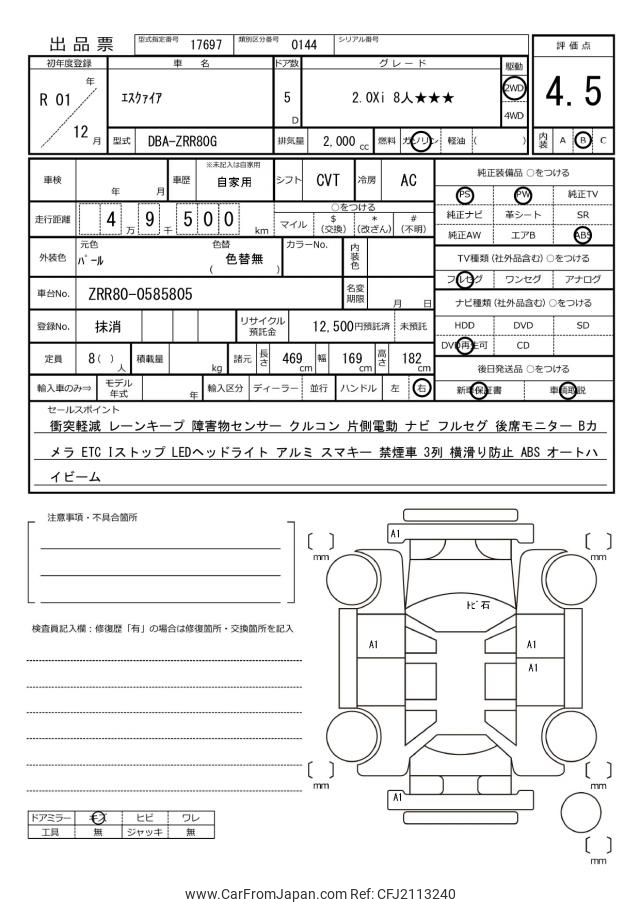 出品票
型式指定番号 17697 類別区分番号 0144 シリアル番号
評価点
4.5
初年度登録 車名 ドア数 グレード 駆動
R 01 年 12 月
ｴｽｸｧｲｱ
5 D
2.0Xi 8人★★★
2WD
4WD
型式 DBA-ZRR80G 排気量 2,000 cc 燃料 ガソリン 軽油 ( )
内装 A B C
車検 年 月 車歴 ※未記入は自家用 自家用 シフト CVT 冷房 AC
純正装備品 ○をつける
PS PW 純正TV
純正ナビ 革シート SR
純正AW エアB ABS
走行距離 4 万 9 千 5 0 0 km
○をつける
マイル $ (交換) * (改ざん) # (不明)
外装色 元色 ﾊﾟｰﾙ 色替 ( 色替無 ) カラーNo. 内装色
TV種類 (社外品含む) ○をつける
フルセグ ワンセグ アナログ
車台No. ZRR80-0585805 名変期限 月 日
ナビ種類 (社外品含む) ○をつける
HDD DVD SD
DVD再生可 CD
登録No. 抹消 リサイクル預託金 12,500円預託済 未預託
定員 8 ( ) 人 積載量 kg 諸元 長さ 469 cm 幅 169 cm 高さ 182 cm
後日発送品 ○をつける
新車保証書 車輌取説
輸入車のみ⇒ モデル年式 年 輸入区分 ディーラー 並行 ハンドル 左 右
セールスポイント
衝突軽減 レーンキープ 障害物センサー クルコン 片側電動 ナビ フルセグ 後席モニター Bカ
メラ ETC Iストップ LEDヘッドライト アルミ スマキー 禁煙車 3列 横滑り防止 ABS オートハ
イビーム
注意事項・不具合箇所
検査員記入欄：修復歴「有」の場合は修復箇所・交換箇所を記入
A1
[ ] mm
[ ] mm
ﾄﾋﾞ石
A1
A1
A1
[ ] mm
[ ] mm
A1
[ ] mm
ドアミラー キズ ヒビ ワレ
工具 無 ジャッキ 無
www.CarFromJapan.com Ref: CFJ2113240